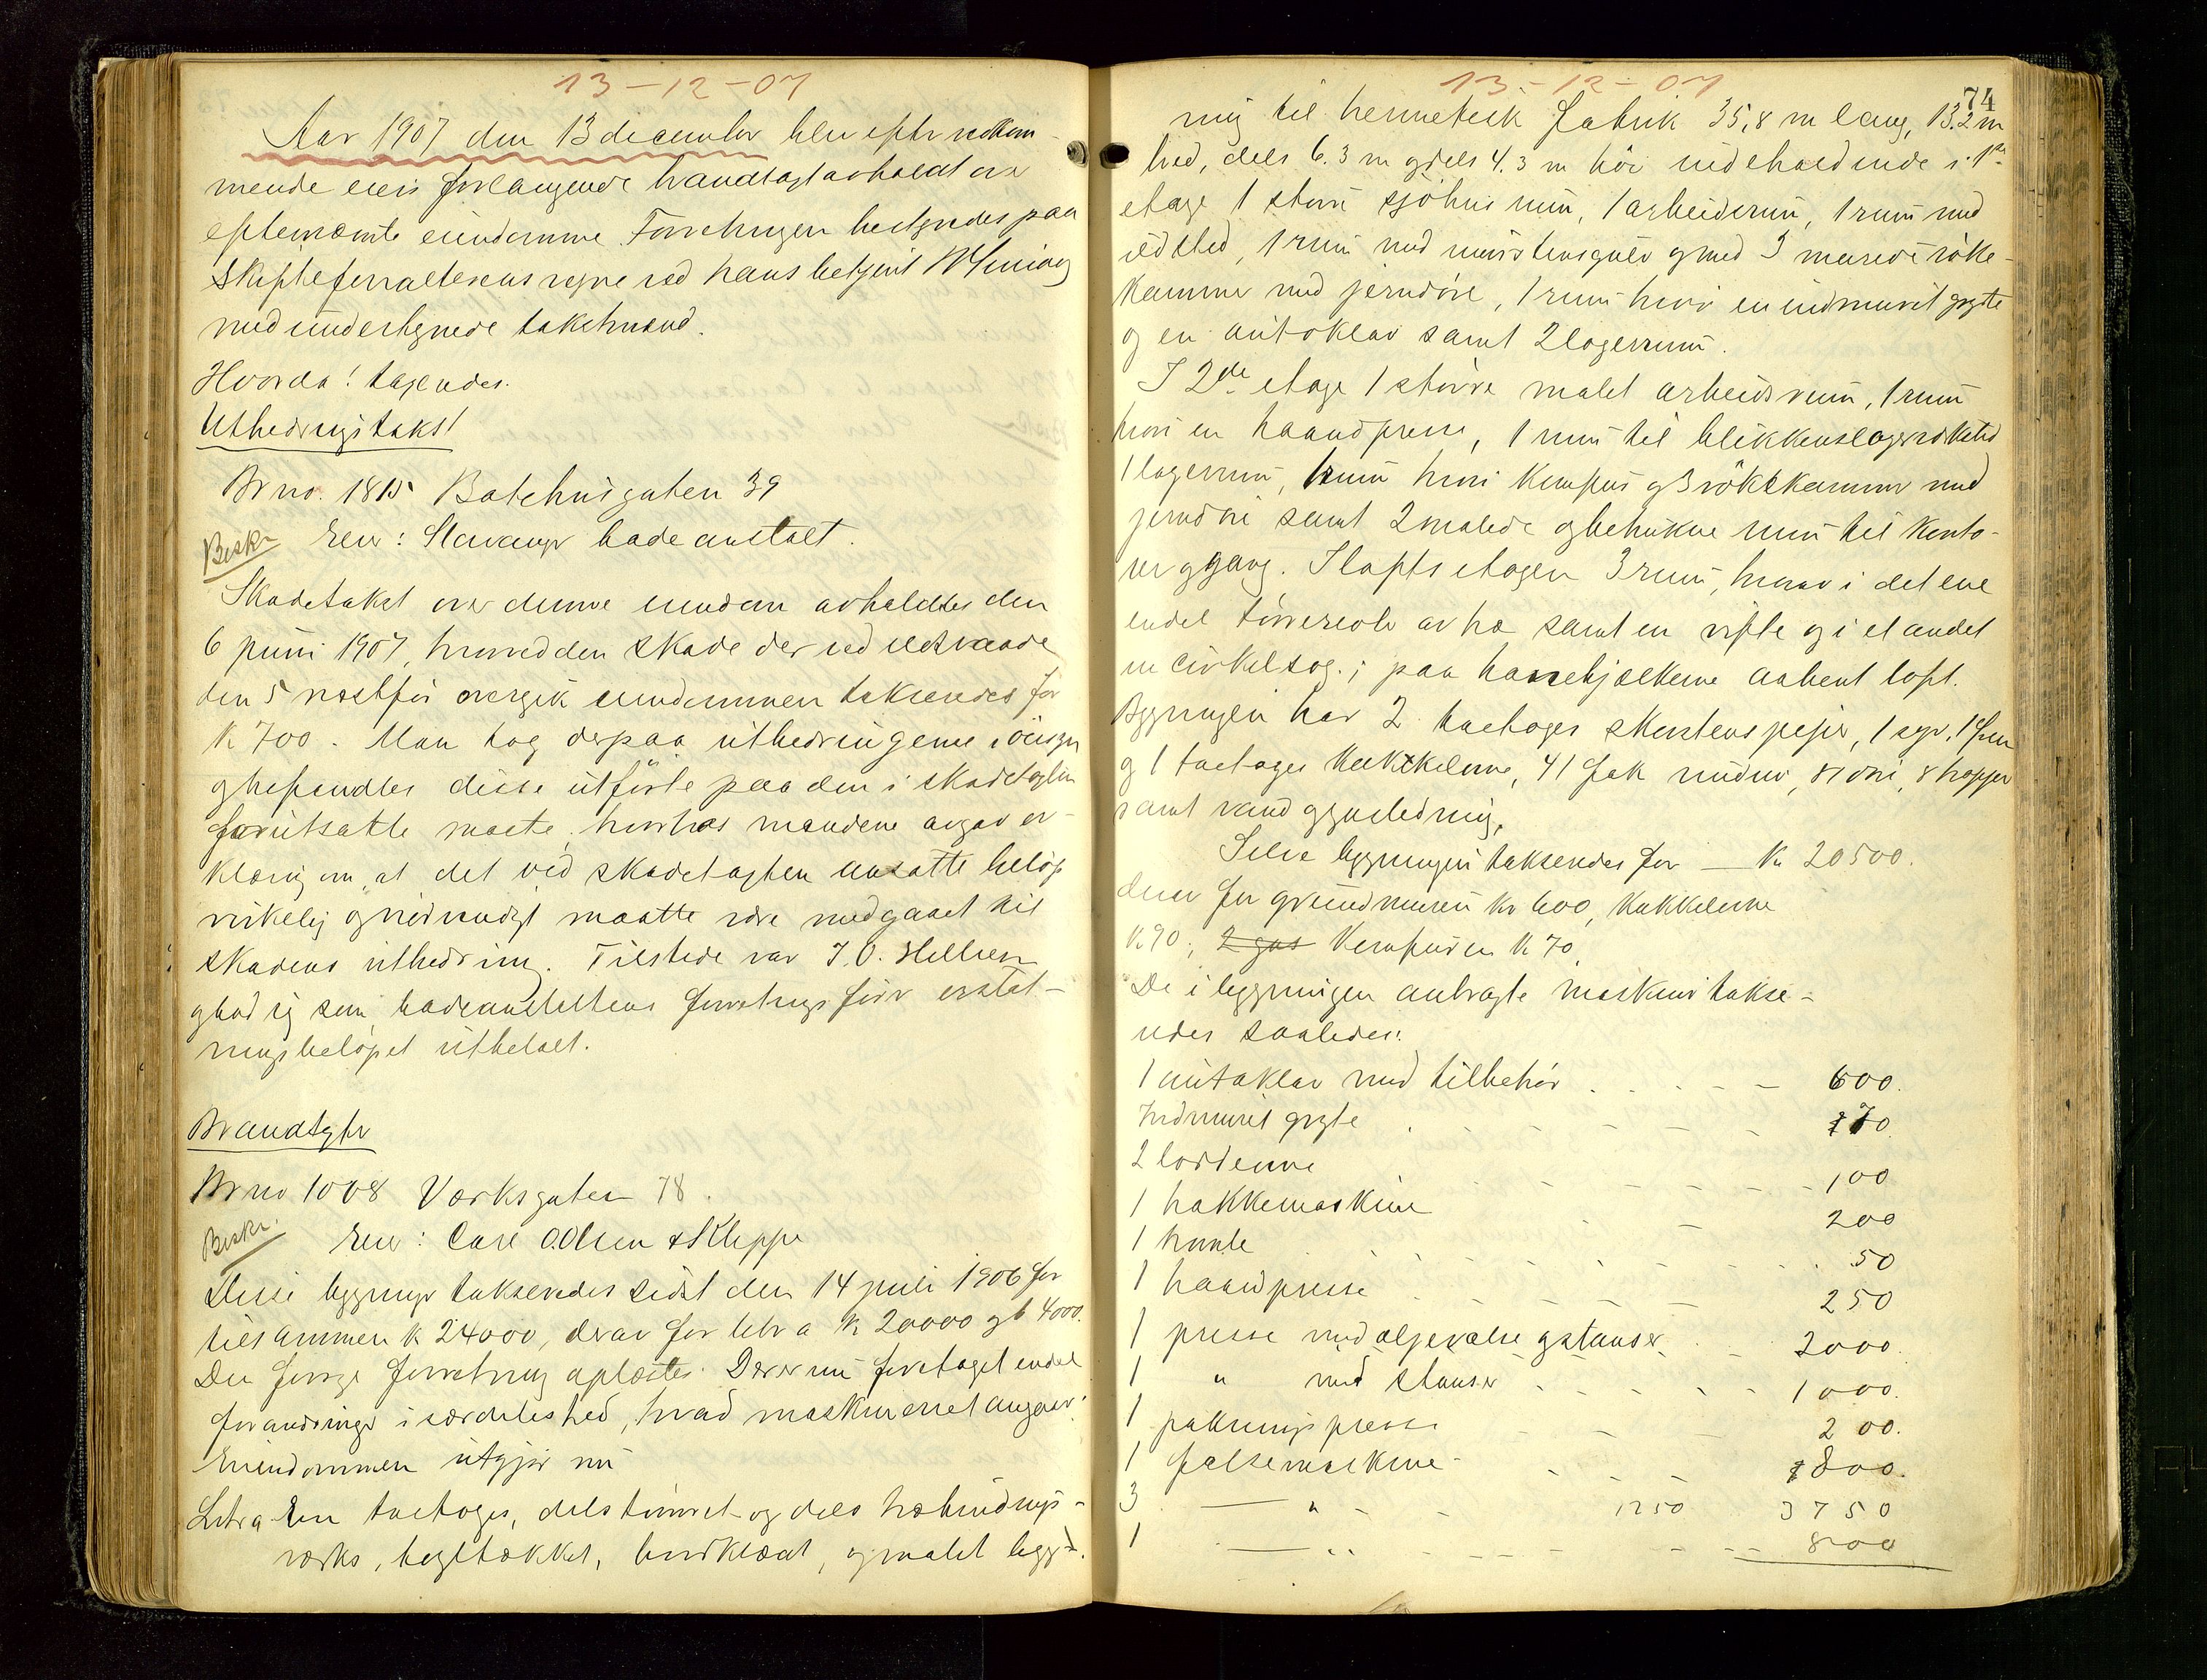 13-12-07
Aar 1907 den 13 december blev efter vedkom-
mende eiers forlangende brandtaxt avholdt over
eftenævnte eiendomme. Forretningen bestyredes paa
skifteforvalterens vegne ved hans betjent
med undertegnede takstmænd.
Hvorda! tagendes.
Utbedringstakst
Br no. 1815 Badehusgaten 39
Beskr. Eier: Stavanger badeanstalt.
Skadetakst over denne eiendom avholdtes den
6 juni 1907, hvorved den skade der ved ildsvaade
den 5 næstfør overgik eiendommen takseredes for
K 700. Man tog derpaa utbedringerne i öiesyn
og befandtes disse utførte paa den i skadetaxten
forutsatte maate, hvorhos mændene avgav er-
klæring om, at det ved skadetaxten ansatte beløp
virkelig og nødvendigt maatte være medgaaet til
skadens utbedring. Tilstede var J. O. Hellesen
og bad sig som badeanstaltens forretningsfører erstat-
ningsbeløpet utbetalt.
Brandtaxter
Br no 1008 Værksgaten 78.
Beskr. Eier: Carl O. Olsen & Kleppe
Disse bygninger takseredes sidst den 14 juli 1906 for
tilsammen K 24000, derav for litr a K 20000 og b 4000.
Den forrige forretning oplæstes. Der er nu foretaget endel
forandringer i særdeleshed, hvad maskineriet angaar.
Eiendommen utgjør nu
Litr a En toetages, dels tømret og dels halvbindings-
verks, tegltækket, bordklædt, og malet byg-
13-12-07
74
ning til hermetisk fabrik 35,8 m lang, 13.2 m
bred, dels 6.3 m og dels 4.3 m höi indeholdende i 1ste
etage 1 større sjöhusrum, 1 arbeiderum, 1 rum med
ildsted, 1 rum med murstensgulv og med 3 murede røke-
kammer med jerndøre, 1 rum hvori en indmuret gryte
og en autoklav samt 2 lagerrum.
I 2de etage 1 större malet arbeidsrum, 1 rum
hvori en haandpresse, 1 rum til blikkenslagerverksted
1 lagerrum, 1 rum hvori komfur og 3 rökekammer med
jerndøre samt 2 malede og betrukne rum til konto-
rer og gang. I loftsetagen 3 rum, hvorav i det ene
endel tørrereoler av træ samt en vifte og i et andet
en cirkelsag; paa hanebjælkerne aabent loft.
Bygningen har 2 toetages skorstenspiper, 1
og 1 toetages kakkelovne, 41 fak vinduer, 81 döre, 8 trapper
samt vand og gasledning,
Selve bygningen takseredes for — Kr 20500.
derav for grundmuren kr 600, kakkelovne
K 90; 2 gas Komfuren K 70,
De i bygningen anbragte maskiner takse-
redes saaledes:
1 autoklav med tilbehør . . . . - 600.
Indmuret gryte . - - - - - 70.
2 - - - - 100
1 hakkemaskine - - 200
1 - - - - 50
1 haandpresse - - - - - 250
1 presse med oljevalse og stanser - - 2000.
1 " med stanser - - - - 1000.
1 pakningspresse - - - 200.
1 falsemaskine - - - - 800.
3 — " - - - 1250 3750
1 — " - - - - 800